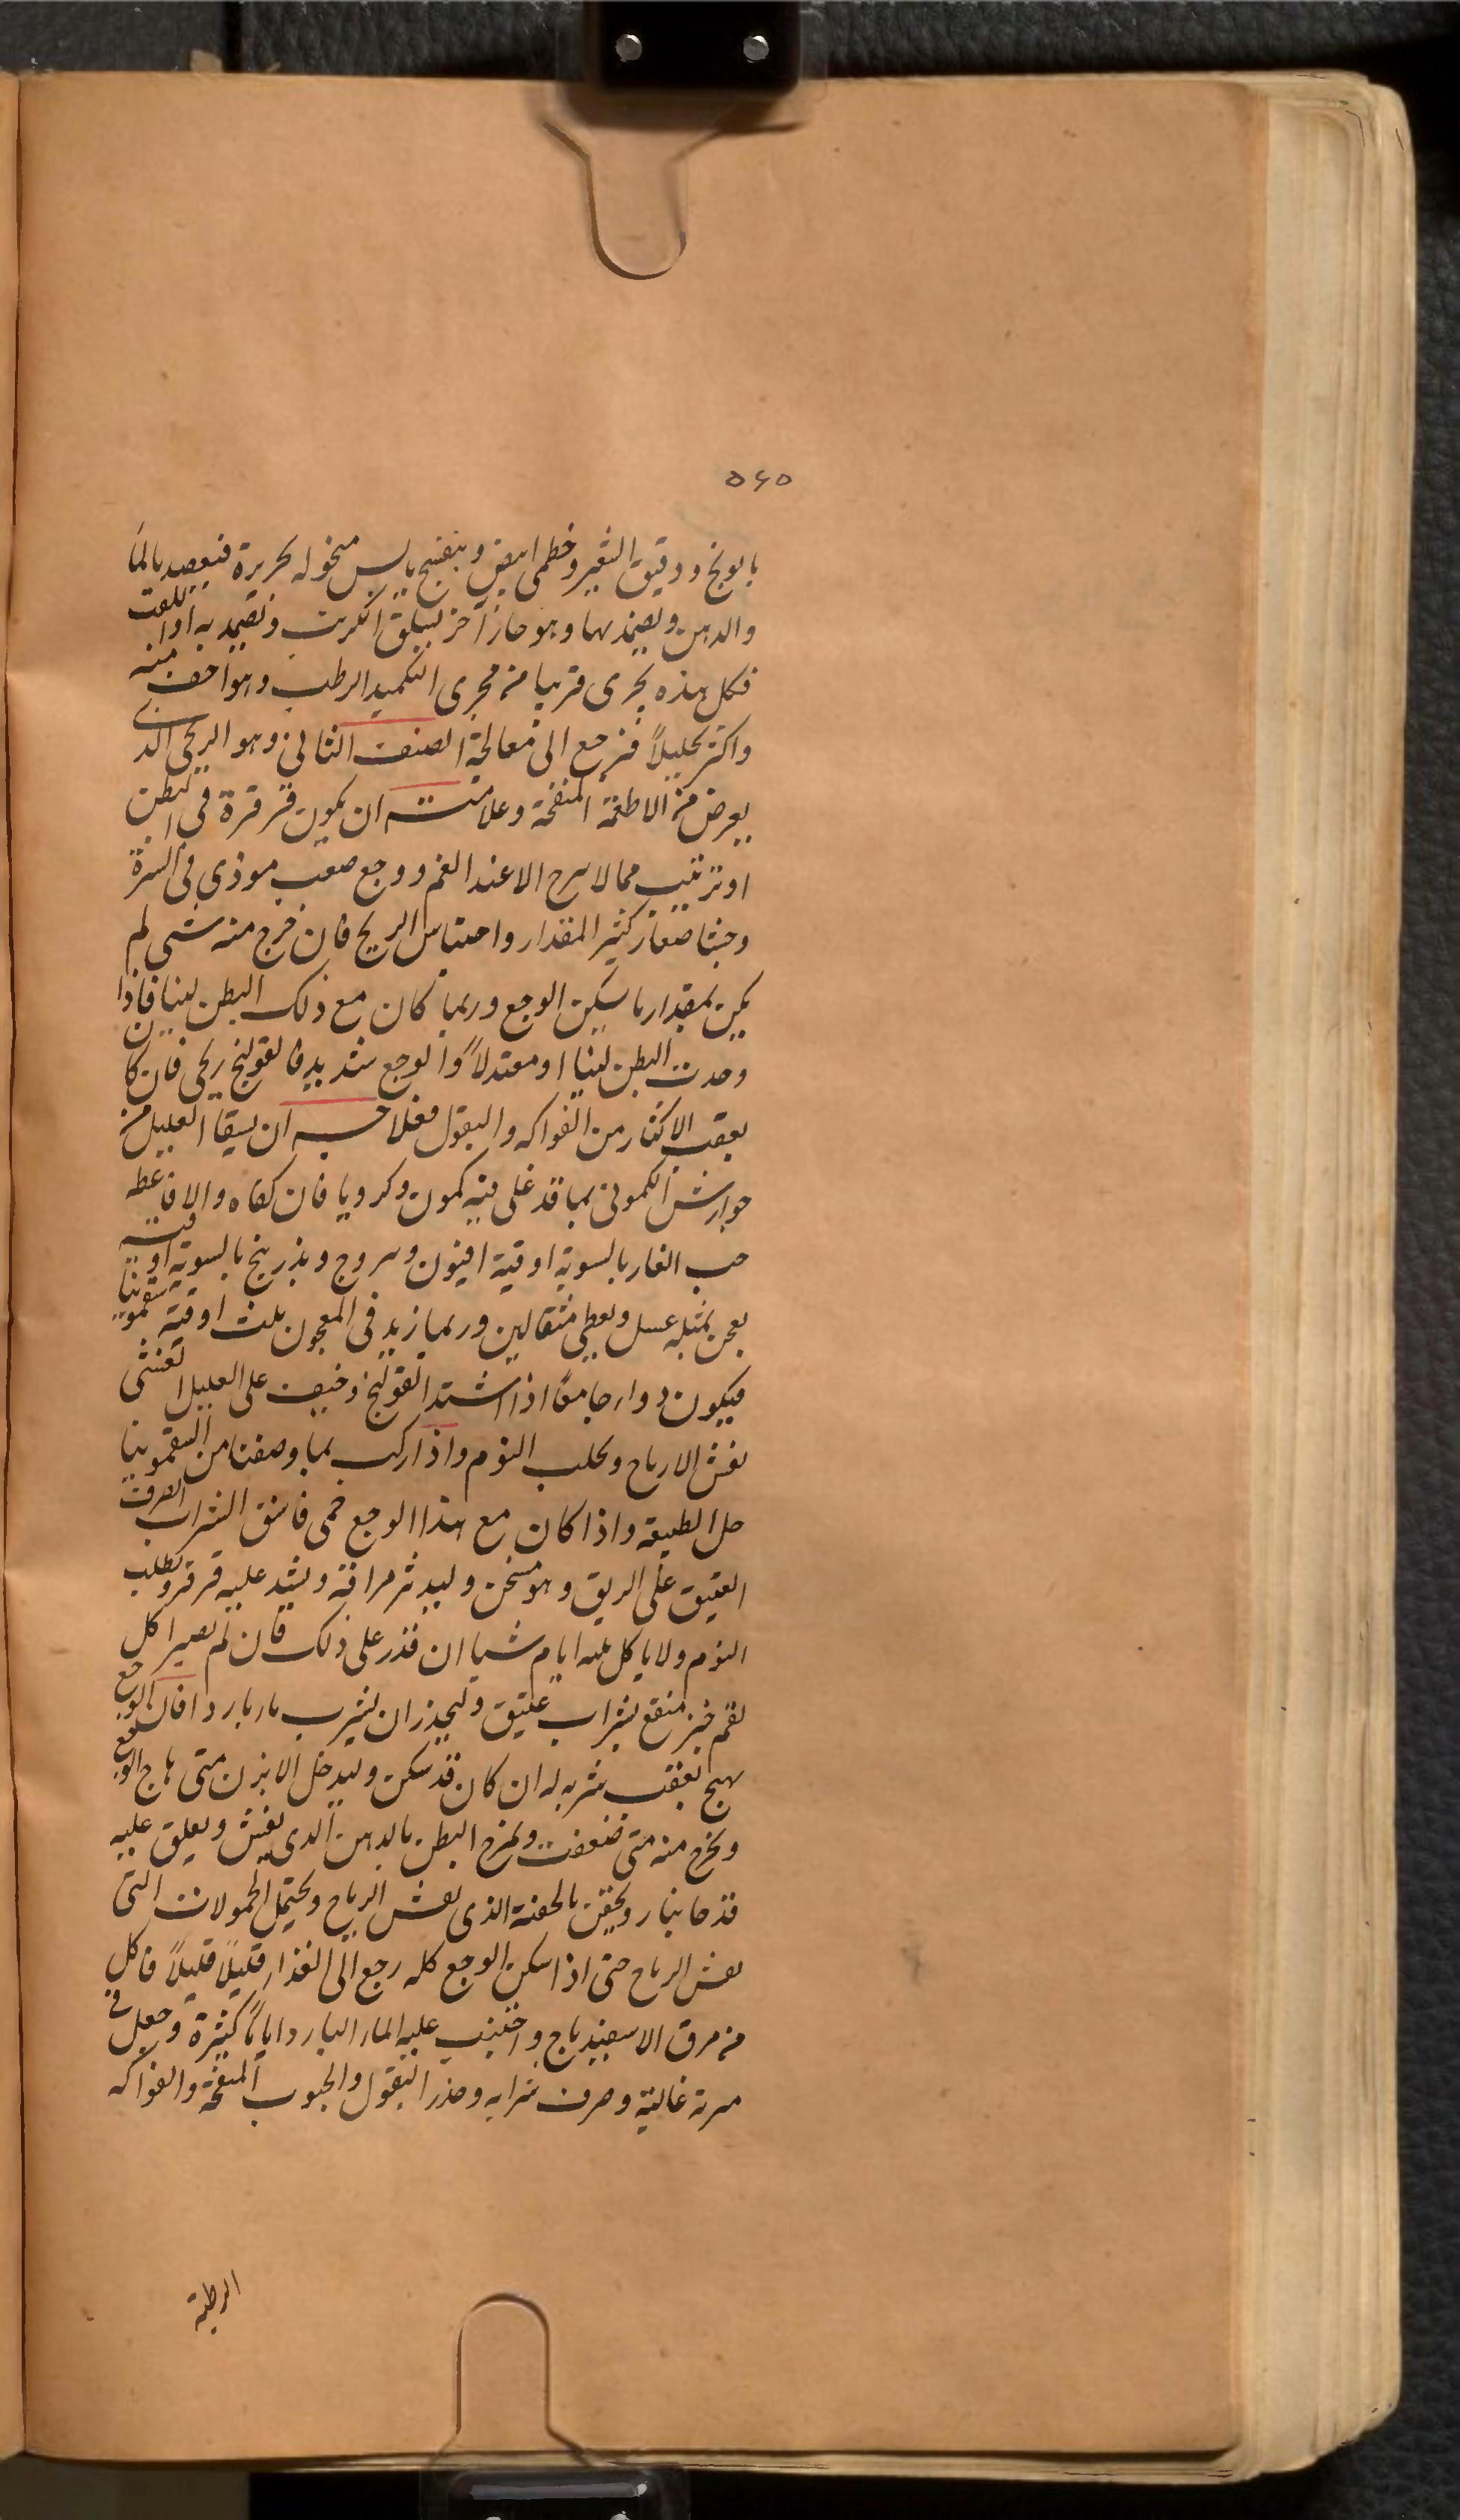 ٥٤٥
بابونج ودقيق الشعير وخطمى ابيض وبنفسج يابس منخوله بحريرة فيعصد بالماء
والدهن ويضمد بها وهو حار آخر يسلق الكرنب وتضمد به او اللفت
فكل هذه يجرى قريبا من مجرى التكميد الرطب وهو اخف منه
واكثر تحليلاً فنرجع الى معالجة الصنف الثانى وهو الريحى الذى
يعرض من الاطعمة المنفخة وعلامته ان يكون قرقرة فى البطن
او مما لا الا عند الغمز ووجع صعب موذى فى السرة
وجشا صغار كثير المقدار واحتباس الريح فان خرج منه شى لم
يكن بمقدار ما يسكن الوجع وربما كان مع ذلك البطن لينا فاذا
وجدت البطن لينا او معتدلاً والوجع شديد فالقولنج ريحى فان كان
بعقب الاكثار من الفواكه والبقول فعلاجه ان يسقا العليل من
جوارش الكمونى بما قد غلى فيه كمون وكرويا فان كفاه والا فاعطه
حب الغار بالسوية اوقية افيون و وبذر بنج بالسوية اوقية
يعجن بمثله عسل ويعطى مثقالين وربما زيد فى المعجون ثلث اوقية سقمونيا
فيكون دوا جامعا اذا اشتد القولنج وخيف على العليل الغشى
يفش الارياح ويجلب النوم واذا ركب بما وصفنا من السقمونيا
حل الطبيعة واذا كان مع هذا الوجع حمى فاسق الشراب الصرف
العتيق على الريق وهو مسخن وليدثر مراقه ويشد عليه ويطلب
النوم ولا ياكل ثلثه ايام شيا ان قدر على ذلك فان لم يصبر اكل
لقم خبز منقع بشراب عتيق وليحذر ان يشرب ماء باردا فان الوجع
يهيج بعقب شربه له ان كان قد سكن وليدخل الابزن متى هاج الوجع
ويخرج منه متى ضعفت ويمرخ البطن بالدهن الذى يفش ويعلق عليه
قدحا بنار ويحقن بالحقنة الذى يفش الرياح ويحتمل الحمولات التى
يفش الرياح حتى اذا سكن الوجع كله رجع الى الغذاء قليلاً قليلاً فاكل
من مرق الاسفيدباج واجتنب عليه الماء البارد اياماً كثيرة وجعل فى
سرته غالية وصرف شرابه وحذر البقول والحبوب المنفخة والفواكه
الرطبة